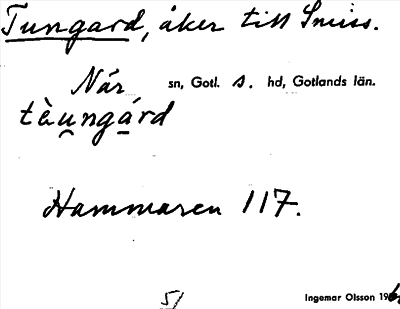 Tungard, åker till Smiss.
När sn, Gotl. s. hd, Gotlands län.
tèu̯ngárd
Hammaren 117.
5/ Ingemar Olsson 19